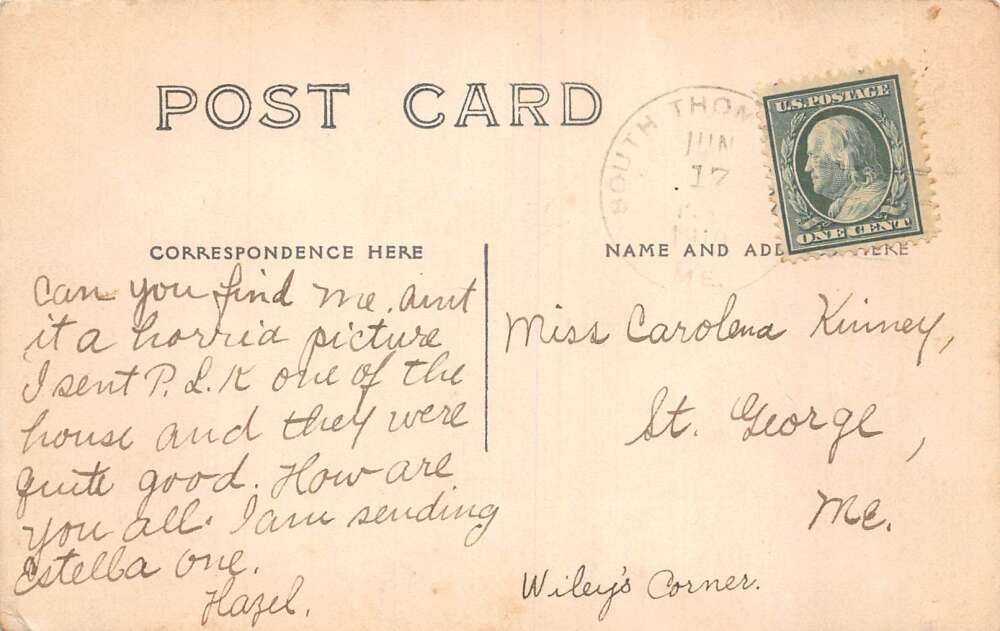 POST CARD
SOUTH THOM
JUN
17
1910
ME.
U.S. POSTAGE
ONE CENT
CORRESPONDENCE HERE
NAME AND ADD HERE
Can you find me. aint
it a horrid picture
I sent P. L. K one of the
house and they were
quite good. How are
you all. I am sending
Estella one.
Hazel.
Miss Carolena Kinney,
St. George,
Me.
Wiley's Corner.